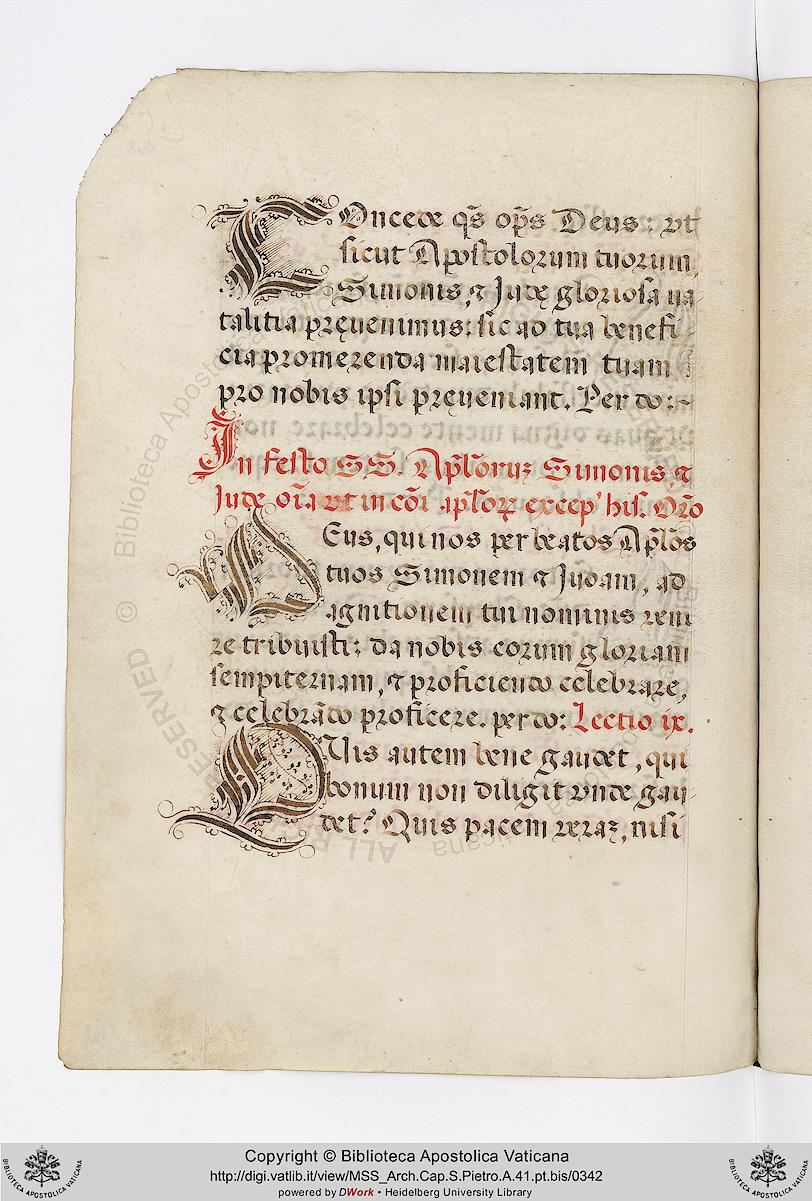 COncede q̃s op̃s Deus: vt
sicut Apostolorum tuorum,
Simonis, ⁊ Judę gloriosa na-
talitia pręuenimus: sic ad tua benefi-
cia promerenda maiestatem tuam
pro nobis ipsi pręueniant. Per do:~
In festo S S. Ap̃lorũ Simonis, ⁊
Jude oı̃a vt in cõi ap̃loꝝ excep' his. Or̃o
DEus, qui nos per beatos Ap̃los
tuos Simonem ⁊ Judam, ad
agnitionem tui nominis veni
re tribuisti: da nobis eorum gloriam
sempiternam, ⁊ proficiendo celebrare,
⁊ celebrãdo proficere. per do: Lectio ix.
QUis autem bene gaudet, qui
bonum non diligit vnde gau-
det? Quis pacem veraz, nisi
Copyright © Biblioteca Apostolica Vaticana
http://digi.vatlib.it/view/MSS_Arch.Cap.S.Pietro.A.41.pt.bis/0342
powered by DWork • Heidelberg University Library
BIBLIOTECA APOSTOLICA VATICANA
BIBLIOTECA APOSTOLICA VATICANA
© Biblioteca Apostolica Vaticana
ALL RIGHTS RESERVED